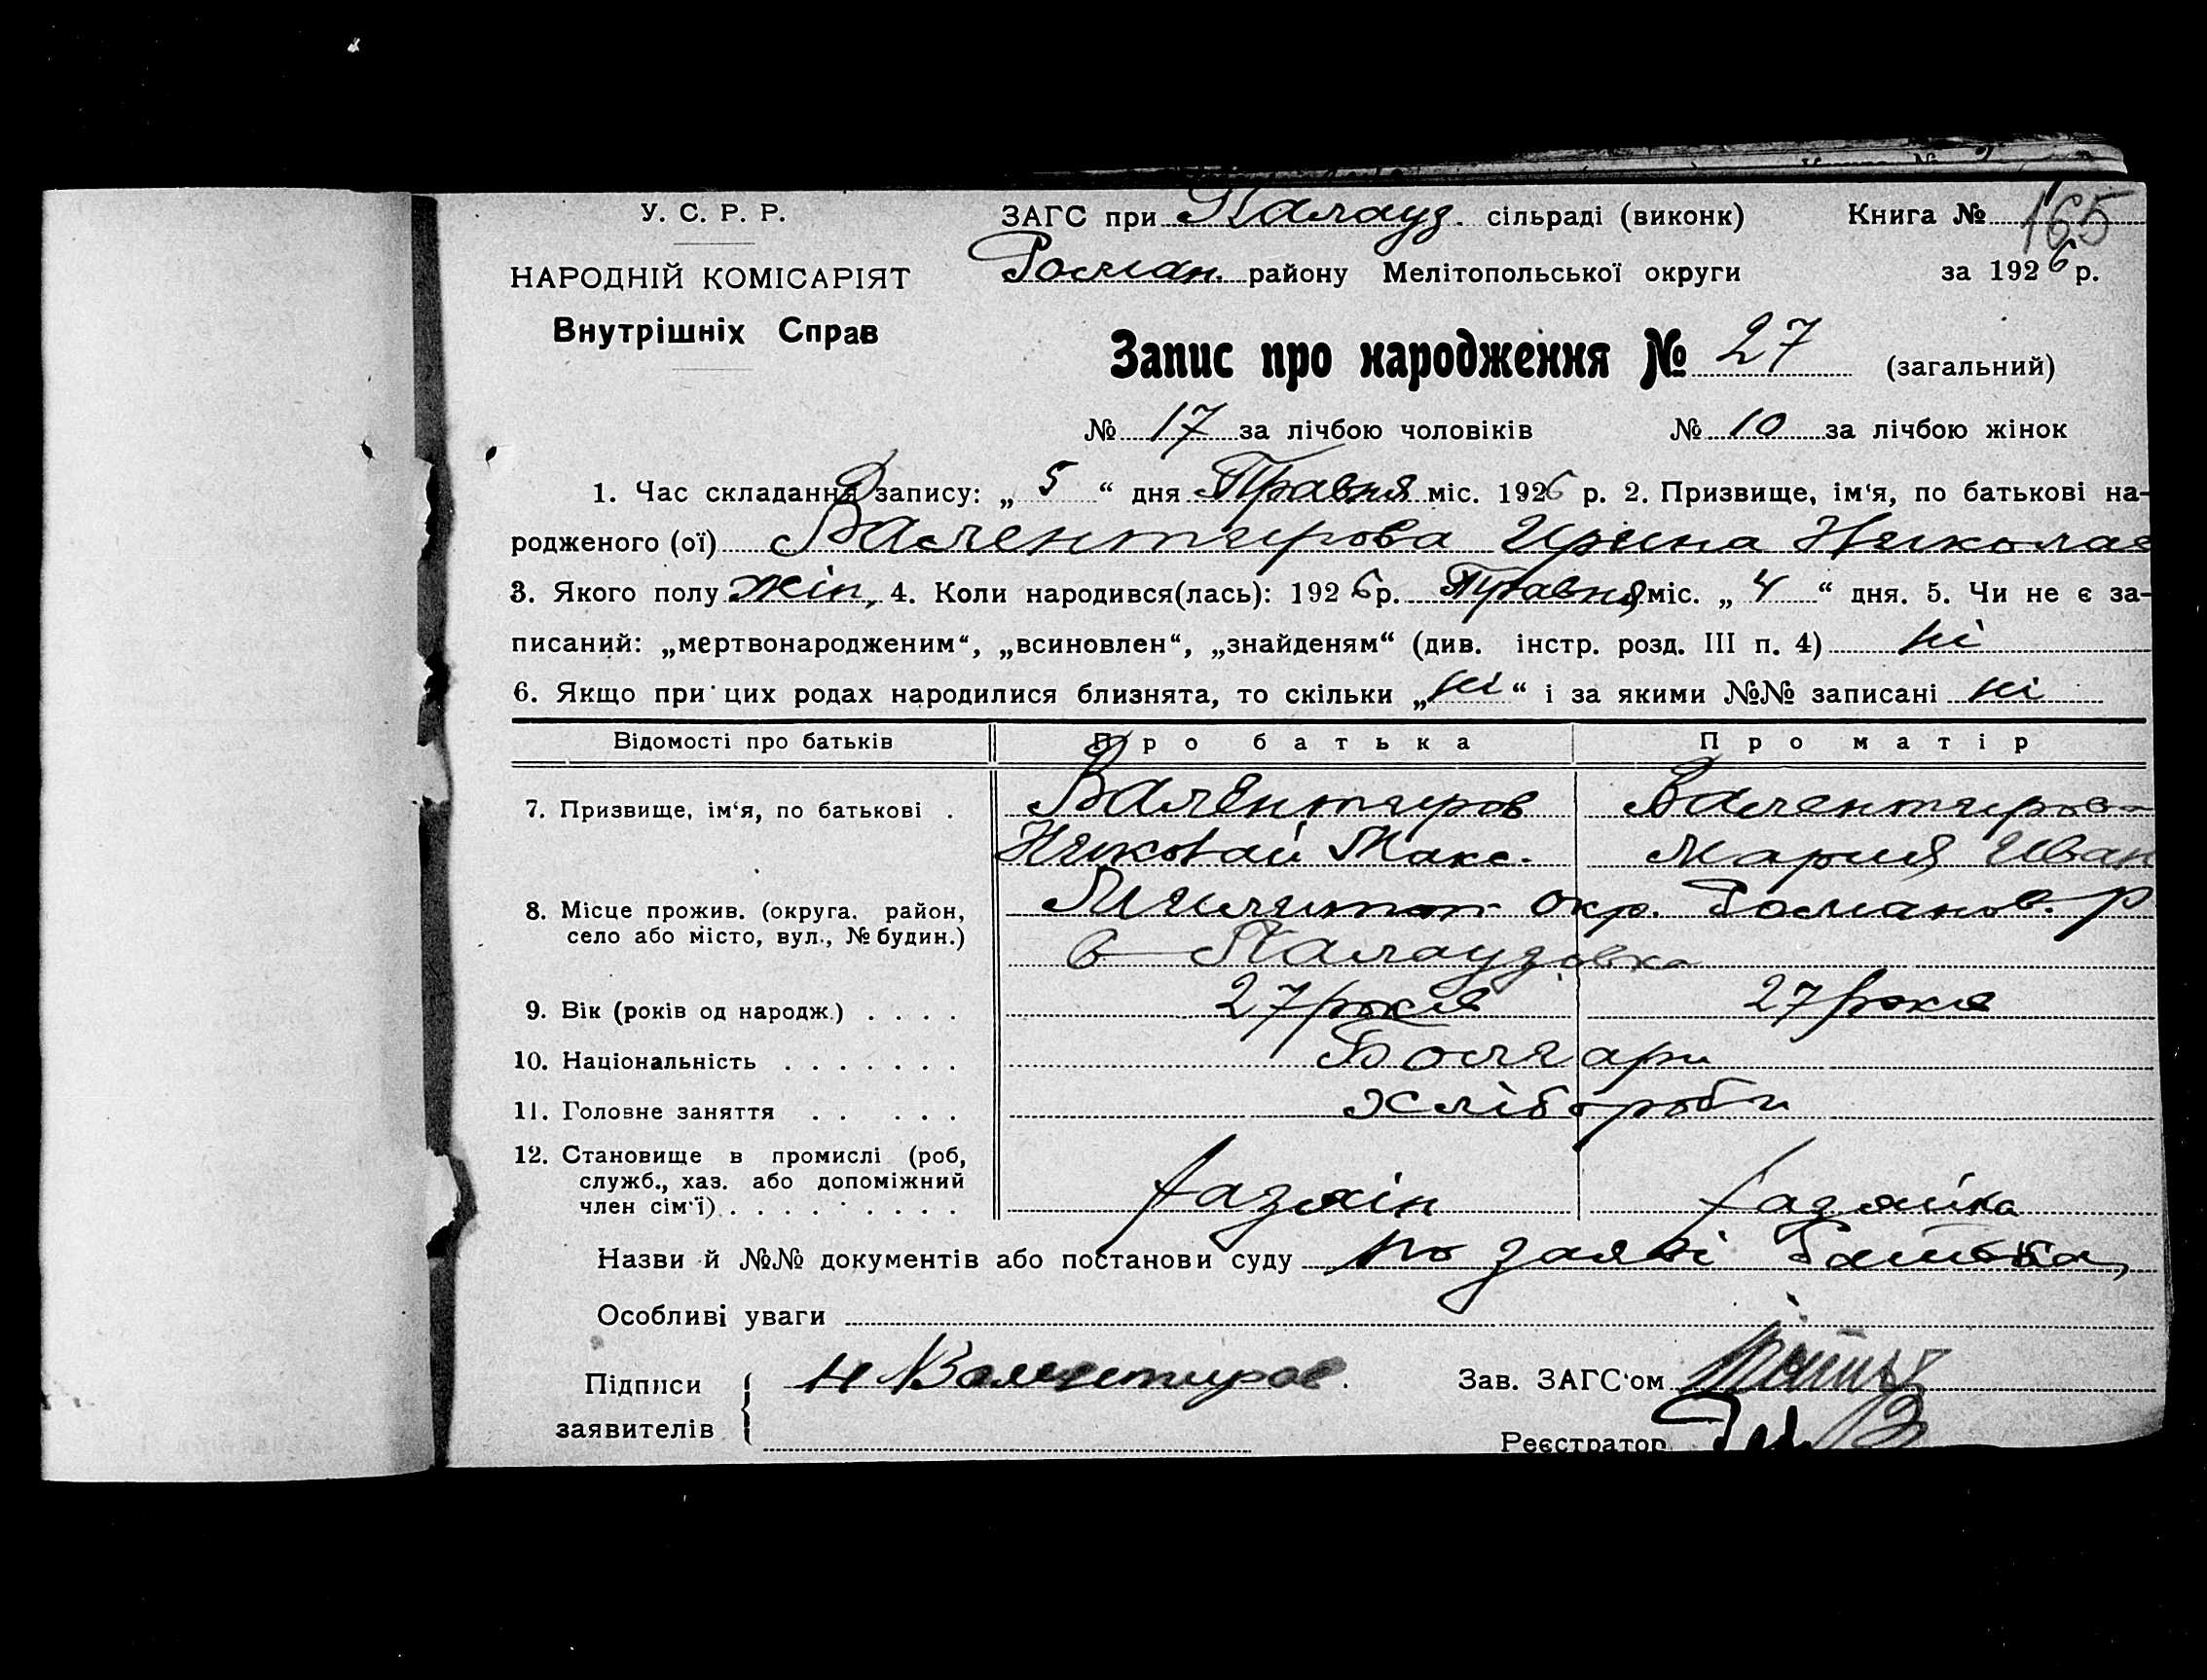 У. С. Р. Р.
НАРОДНІЙ КОМІСАРІЯТ
Внутрішніх Справ
ЗАГС при Палауз. сільраді (виконк) Книга № 165
Роман. району Мелітопольської округи за 1926 р.
Запис про народження № 27 (загальний)
№ 17 за лічбою чоловіків № 10 за лічбою жінок
1. Час складання запису: „ 5 “ дня Травня міс. 1926 р. 2. Призвище, ім‘я, по батькові на-
родженого (ої) Валентирова Ирина Николае
3. Якого полу жін, 4. Коли народився(лась): 1926 р. Травня міс. „ 4 “ дня. 5. Чи не є за-
писаний: „мертвонародженим“, „всиновлен“, „знайденям“ (див. інстр. розд. III п. 4) ні
6. Якщо при цих родах народилися близнята, то скільки „ ні “ і за якими №№ записані ні
Відомості про батьків Про батька Про матір
7. Призвище, ім‘я, по батькові . Валентиров Валентирова
Николай Макс. Мария Иван
8. Місце прожив. (округа, район, село або місто, вул., № будин.) Мелитоп окр. Романов. р
в Палаузовка
9. Вік (років од народж.) . . . . 27 років 27 років
10. Національність . . . . . . . Болгари
11. Головне заняття . . . . . Хлібороби
12. Становище в промислі (роб,
служб., хаз. або допоміжний
член сім‘ї) . . . . . . . . . Хазяін Хазяйка
Назви й №№ документів або постанови суду по заяві батька,
Особливі уваги
Підписи Н Валентиров. Зав. ЗАГС‘ом
заявителів
Реєстратор